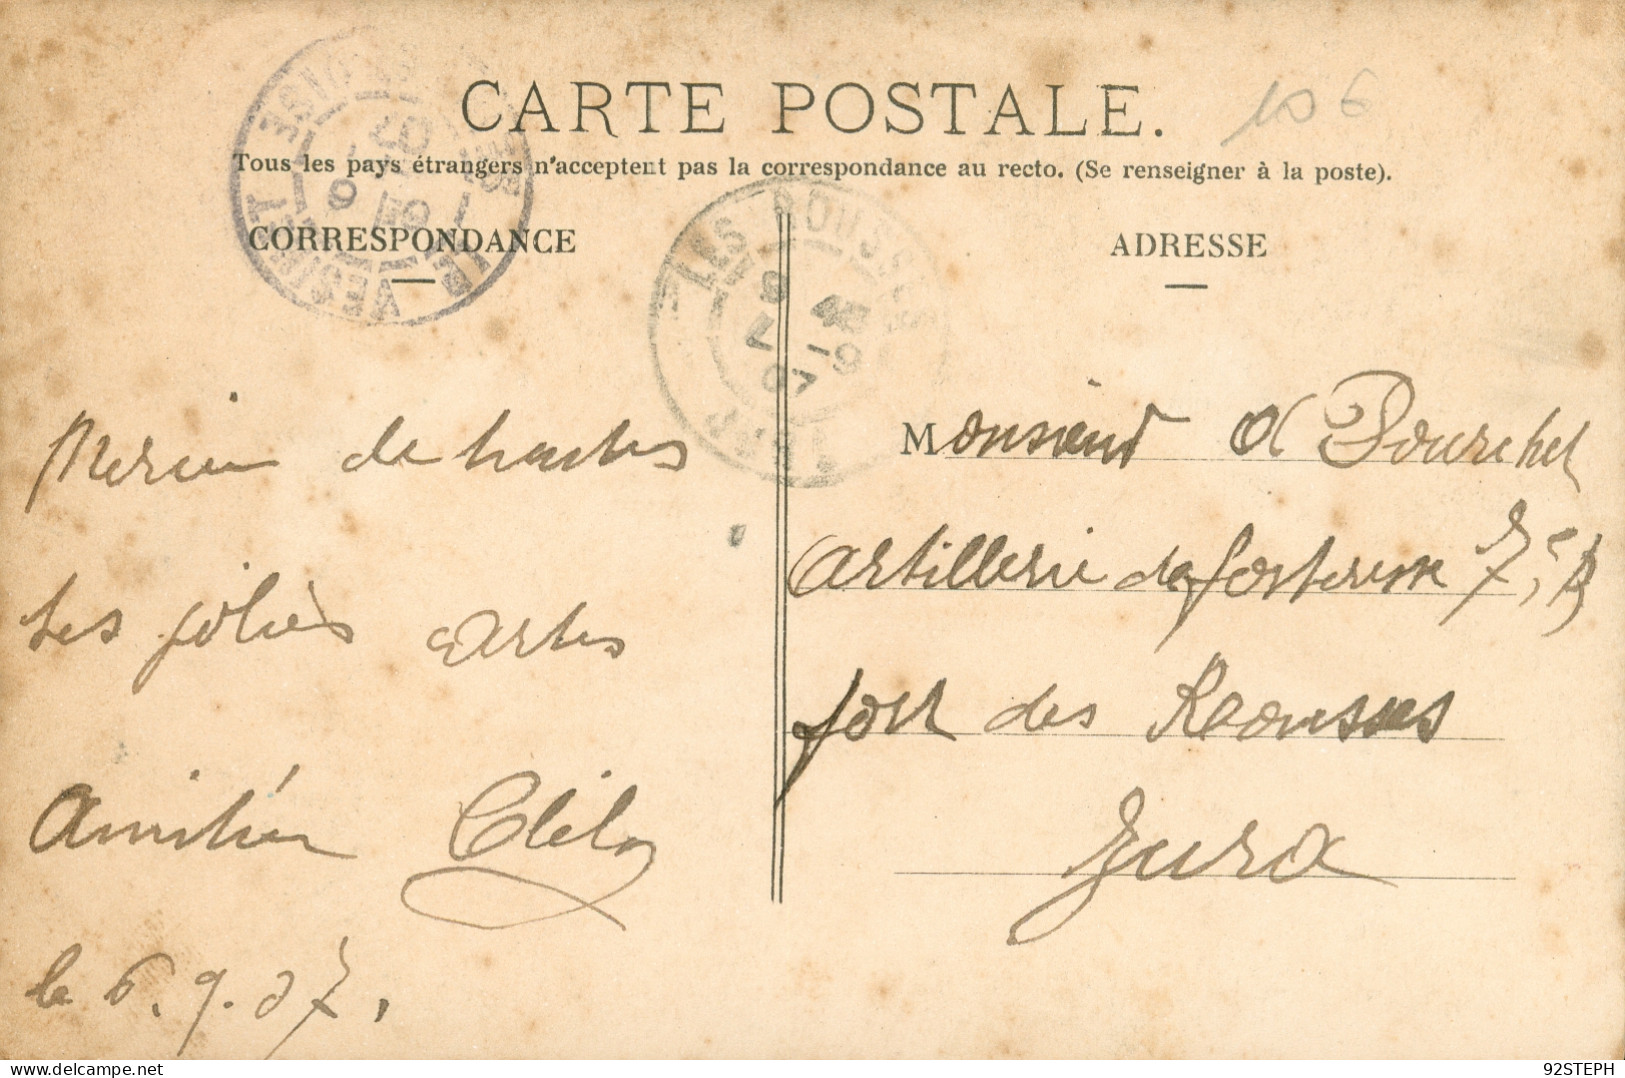 CARTE POSTALE.
106
Tous les pays étrangers n'acceptent pas la correspondance au recto. (Se renseigner à la poste).
CORRESPONDANCE
LE VESINET SEINE-ET-OISE
6 9 07
Mercie de toutes
tes jolies cartes
Amitiés Clélay
le 6.9.07.
LES ROUSSES JURA
8 7-9 07
ADRESSE
Monsieur A Pourchet
Artillerie de forteresse 7e B
fort des Rousses
Jura
92STEPH